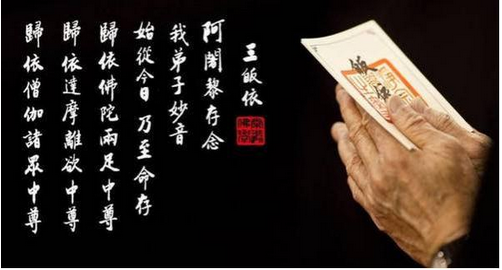 三皈依
阿闍黎存念
我弟子妙音
始從今日 乃至命存
歸依佛陀兩足中尊
歸依達摩離欲中尊
歸依僧伽諸眾中尊
皈依